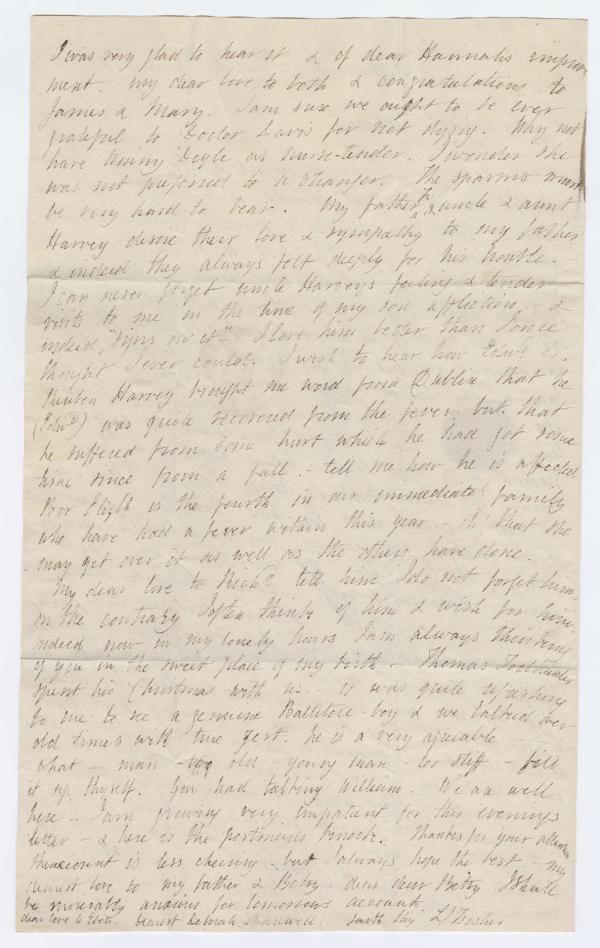 I was very glad to hear it & of dear Hannahs improve
ment. my dear love to both & congratulations to
James & Mary. I am sure we ought to be ever
grateful to Doctor Davis for not dying. Why not
have Nanny Doyle as nurse-tender. I wonder she
was not preferred to a stranger. The spasms must
be very hard to bear. My father, uncle & aunt
Harvey desire their love & sympathy to my father
& indeed they always felt deeply for his trouble.
I can never forget uncle Harvey's feeling & tender
visits to me in the time of my sore affliction, - &
indeed, "signs on it" I love him better than I once
thought I ever could. I wish to hear how Edwd is.
Reuben Harvey brought me word from Dublin that he
(Edwd) was quite recovered from the fever but that
he suffered from some hurt which he had got some
time since from a fall. - tell me how he is affected
Poor Elizth is the fourth in our immediate family
who have had a fever within this year - oh! that she
may get over it as well as the others have done.
My dear love to Richd tell him I do not forget him
on the contrary I often think of him & wish for him,
indeed now in my lonely hours I am always thinking
of you in the sweet place of my birth. Thomas Fothusler
spent his Christmas with us. it was quite refreshing
to me to see a genuine Ballitore boy & we talked over
old times with true zest. he is a very agreeable
what - man - too old - young man - too stiff - fill
it up thyself. You had talking William. We are well
here. I am growing very impatient for this evenings
letter - & here is the postman's knock. Thanks for your attention
the account is less cheering - but I always hope the best - my
dearest love to my father & Betsy. dear dear Betsy. I shall
be miserably anxious for tomorrows account.
dear love to Eben. Dearest Deborah, farewell! saith thy L J Fisher